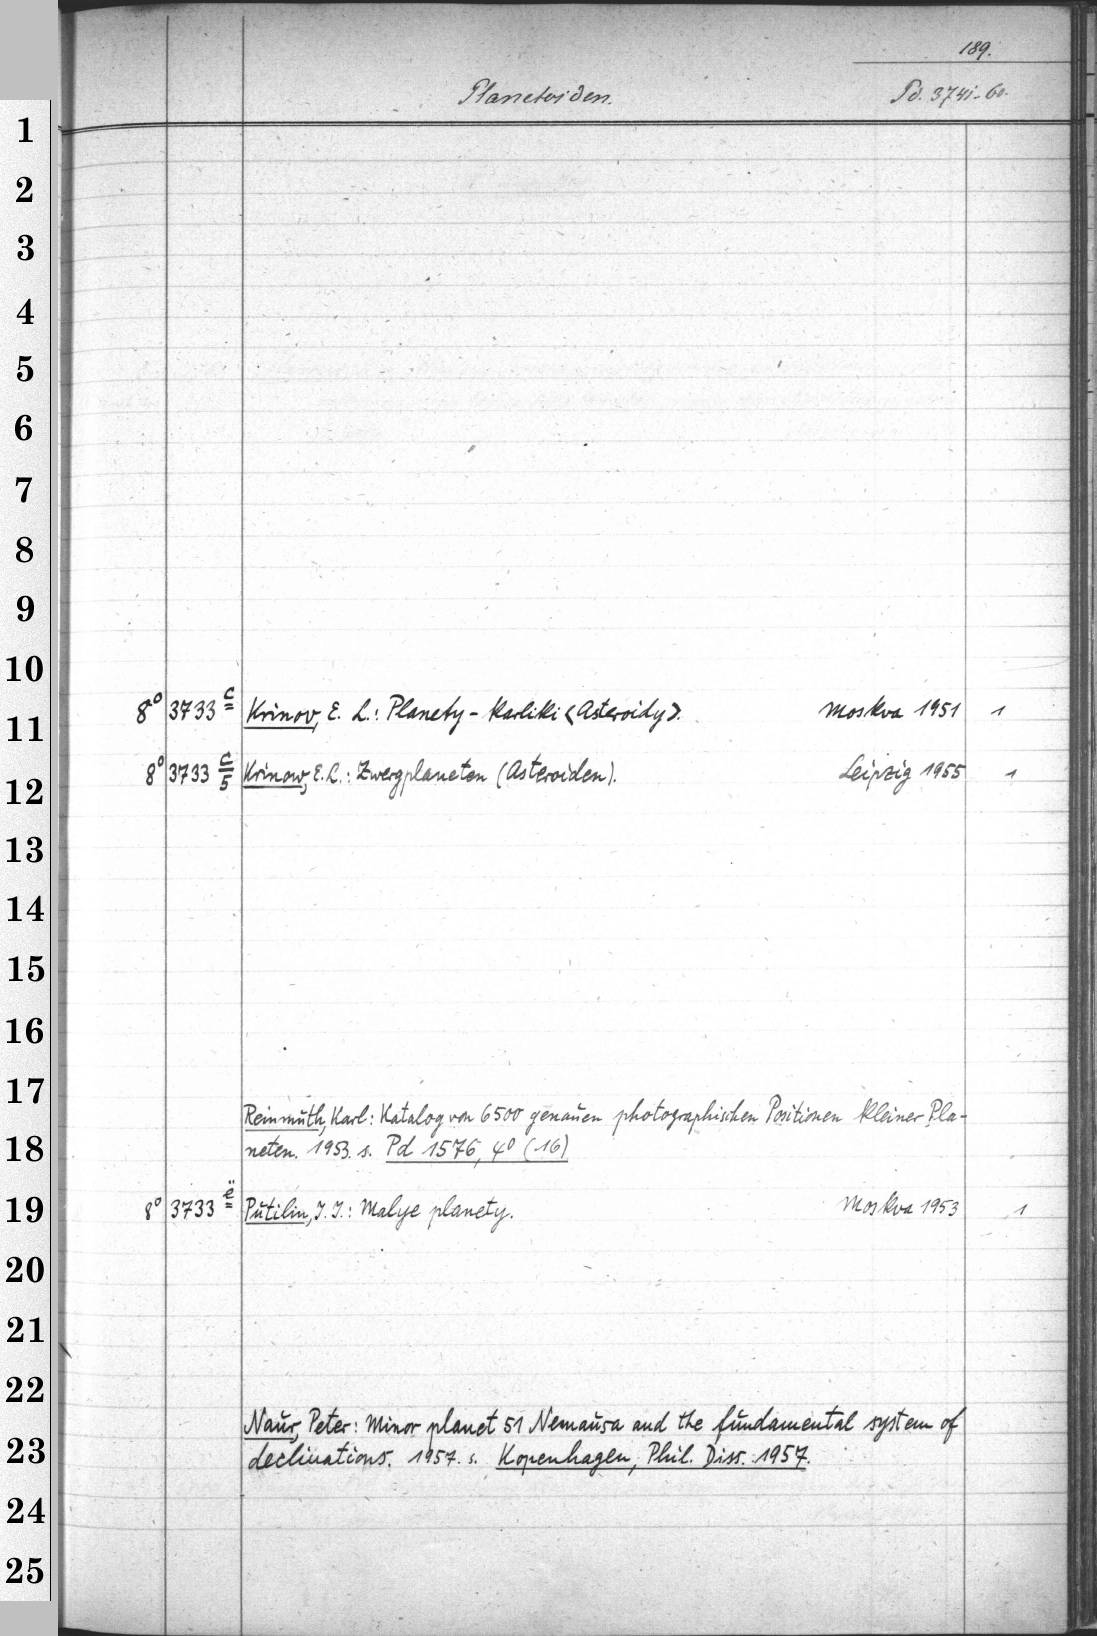 189.
Planetoiden. Pd. 3741-60.
1
2
3
4
5
6
7
8
9
10
8° 3733 c Krinov, E. L.: Planety-karliki <Asteroidy>. Moskva 1951 1
11
8° 3733 c/5 Krinow, E. L.: Zwergplaneten (Asteroiden). Leipzig 1955 1
12
13
14
15
16
17
Reinmuth, Karl: Katalog von 6500 genauen photographischen Positionen kleiner Pla-
18
neten. 1953. s. Pd 1576, 4° (16)
19
8° 3733 ë Putilin, I. I.: Malye planety. Moskva 1953 1
20
21
22
Naur, Peter: Minor planet 51 Nemausa and the fundamental system of
23
declinations. 1957. s. Kopenhagen, Phil. Diss. 1957.
24
25